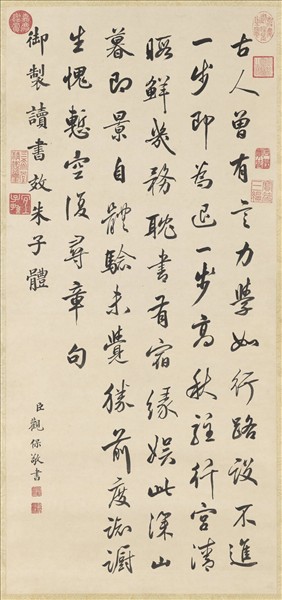 古人曾有言力學如行路設不進
一步即為退一步高秋駐行宮清
暇鮮幾務耽書有宿緣娛此深山
暮即景自體驗未覺勝前度
生愧慙空復尋章句
御製讀書效朱子體
臣觀保敬書